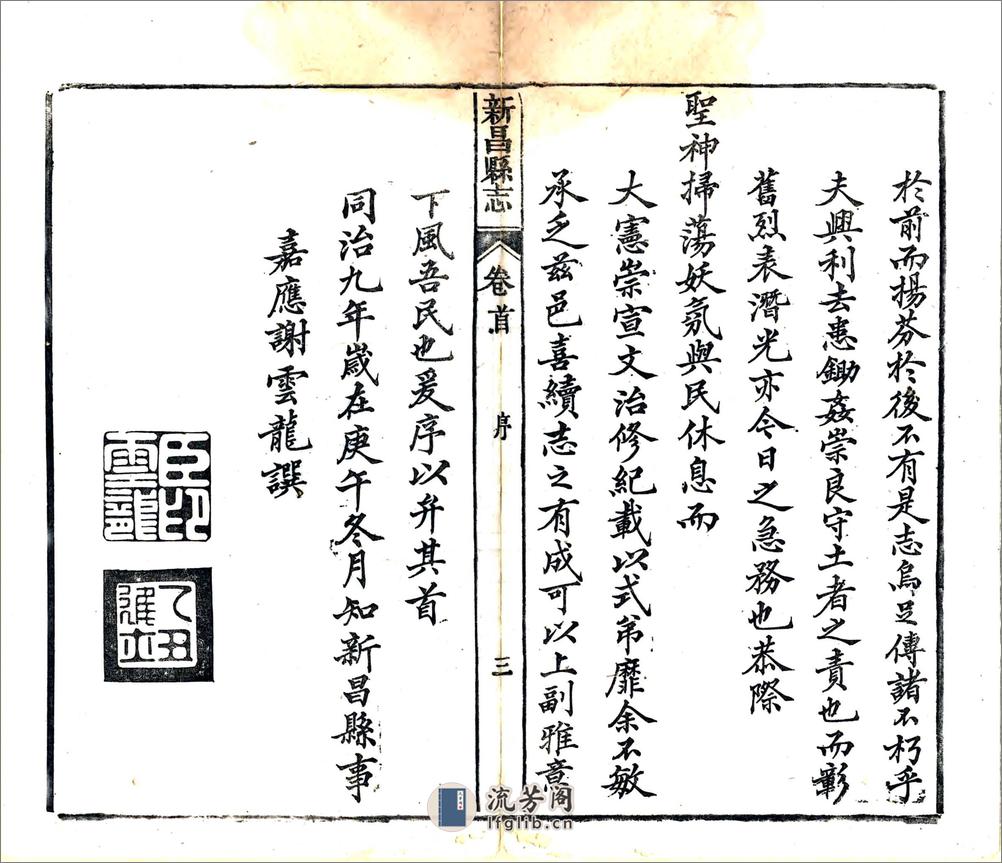 於前而揚芬於後不有是志烏足傳諸不朽乎
夫興利去患鋤姦崇良守土者之責也而彰
舊烈表潛光亦今日之急務也恭際
聖神掃蕩妖氛與民休息而
大憲崇宣文治修紀載以式帘靡余不敏
承乏茲邑喜續志之有成可以上副雅意
新昌縣志
卷首
序
三
下風吾民也爰序以弁其首
同治九年歲在庚午冬月知新昌縣事
嘉應謝雲龍譔
臣印雲龍
乙丑進士
流芳阁
lfglib.cn